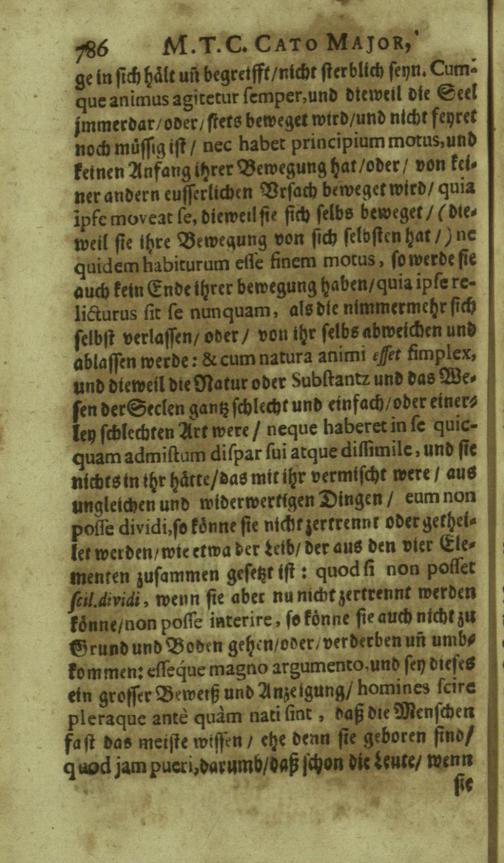 786 M. T. C. CATO MAJOR,
ge in sich hält uñ begreifft/nicht sterblich seyn. Cum-
que animus agitetur semper, und dieweil die Seel
jmmerdar/oder/stets beweget wird/und nicht feyret
noch müssig ist/ nec habet principium motus, und
keinen Anfang ihrer Bewegung hat/oder/ von kei-
ner andern eusserlichen Ursach beweget wird/ quia
ipse moveat se, dieweil sie sich selbs beweget/(die-
weil sie ihre Bewegung von sich selbsten hat/) ne
quidem habiturum esse finem motus, so werde sie
auch kein Ende ihrer bewegung haben/quia ipse re-
licturus sit se nunquam, als die nimmermehr sich
selbst verlassen/oder/ von ihr selbs abweichen und
ablassen werde: & cum natura animi esset simplex,
und dieweil die Natur oder Substantz und das We-
sen der Seelen gantz schlecht und einfach/oder einer-
ley schlechten Art were/ neque haberet in se quic-
quam admistum dispar sui atque dissimile, und sie
nichts in ihr hätte/das mit ihr vermischt were/ aus
ungleichen und widerwertigen Dingen/ eum non
posse dividi, so könne sie nicht zertrennt oder gethei-
let werden/wie etwa der Leib/der aus den vier Ele-
menten zusammen gesetzt ist: quod si non posset
scil. dividi, wenn sie aber nu nicht zertrennt werden
könne/non posse interire, so könne sie auch nicht zu
Grund und Boden gehen/oder/verderben uñ umb-
kommen: esseque magno argumento, und sey dieses
ein grosser Beweiß und Anzeigung/ homines scire
pleraque antè quàm nati sint, daß die Menschen
fast das meiste wissen/ ehe denn sie geboren sind/
quod jam pueri, darumb/daß schon die Leute/ wenn
sie